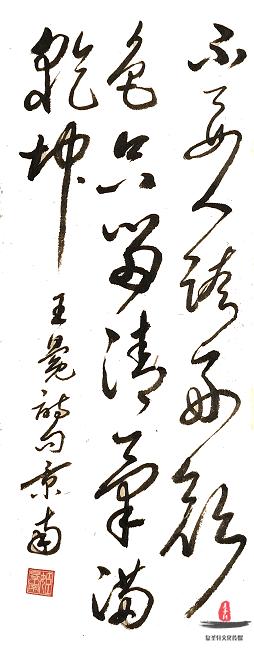 不要人誇好顏
色只留清氣滿
乾坤
王冕詩句京南
文化传媒